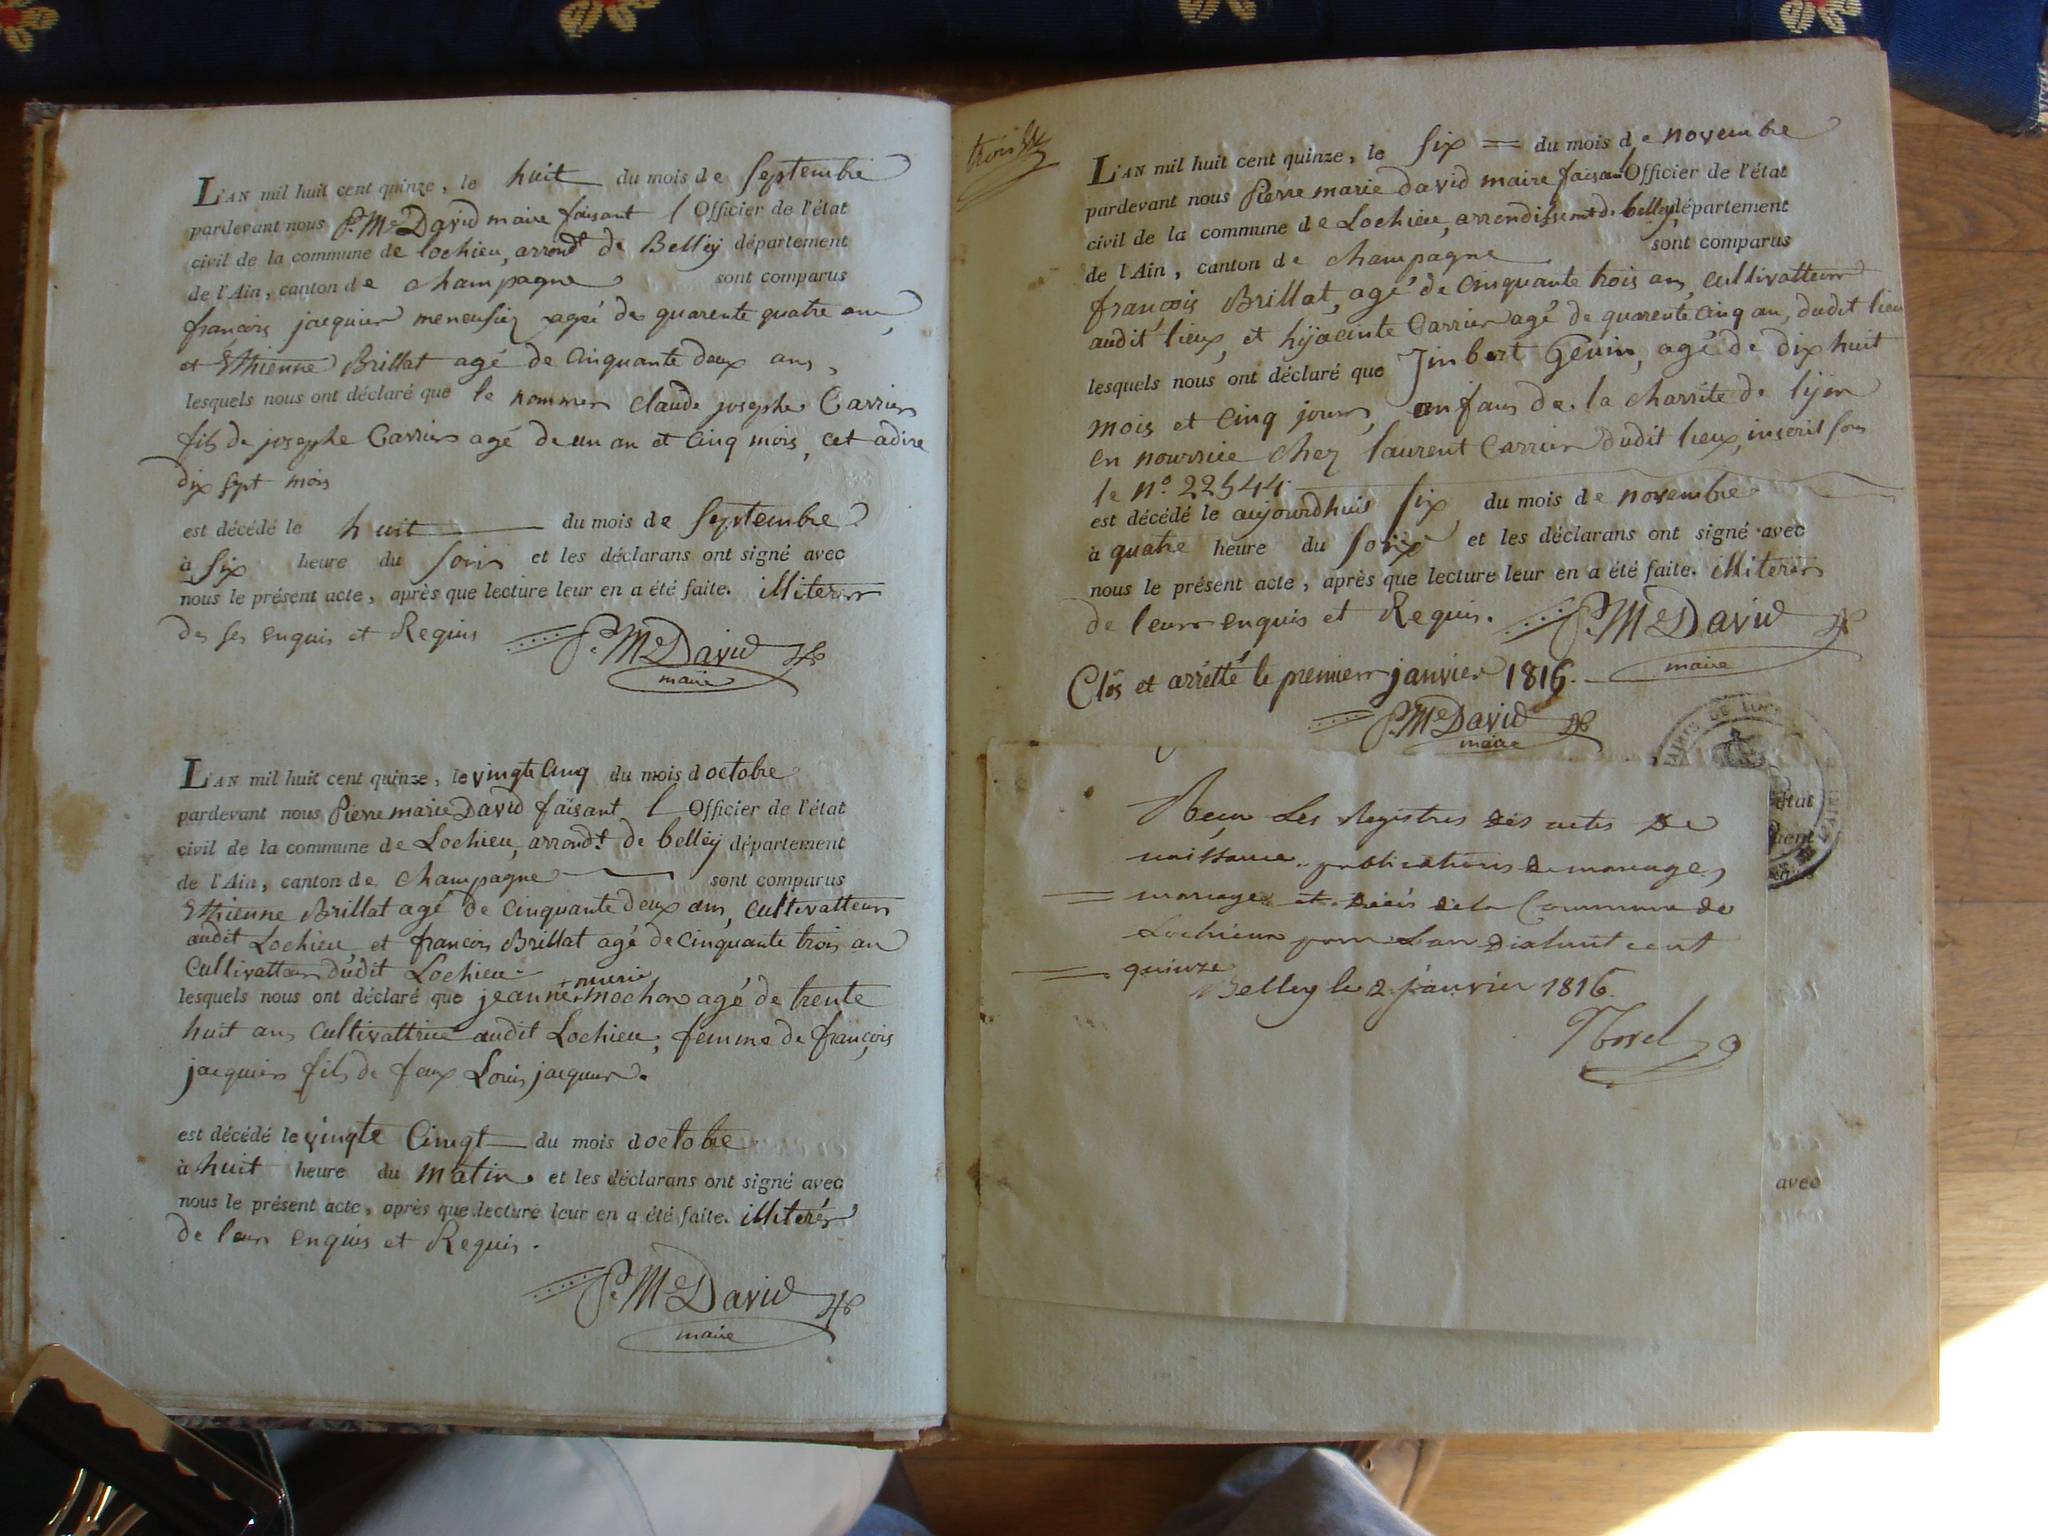 L'AN mil huit cent quinze, le huit du mois de Septembre
pardevant nous P. Me David maire faisant l Officier de l'état
civil de la commune de lochieu, arrondt de Belley département
de l'Ain, canton de champagne sont comparus
françois jacquier meneusier agée de quarente quatre ans,
et Ethienne Brillat agé de Cinquante deux ans,
lesquels nous ont déclaré que le nommer claude josephe Carrier
fils de josephe Carrier agé de un an et Cinq mois, cet adire
dix sept mois
est décédé le huit du mois de Septembre
à six heure du soir et les déclarans ont signé avec
nous le présent acte, après que lecture leur en a été faite. illiterer
des ses enquis et Requis
P. Me David
maire
L'AN mil huit cent quinze, le vingte Cinq du mois doctobre
pardevant nous Pierre marie David faisant l Officier de l'état
civil de la commune de Lochieu, arrondt. de belley département
de l'Ain, canton de champagne sont comparus
Ethienne Brillat agé de Cinquante deux ans, Cultivatteur
audit Lochieu et françois Brillat agé de Cinquante trois an
Cultivatteur dudit Lochieu
lesquels nous ont déclaré que jeanne marie mochon agé de trente
huit ans Cultivattrice audit Lochieu, femme de françois
jacquier fils de feux Louis jacquier.
est décédé le vingte Cinqt du mois doctobre
à huit heure du matin et les déclarans ont signé avec
nous le présent acte, après que lecture leur en a été faite. illiterés
de leurs enquis et Requis.
P. Me David
maire
L'AN mil huit cent quinze, le six du mois de novembre
pardevant nous Pierre marie David maire faisant Officier de l'état
civil de la commune de Lochieu, arrondissemt de belley, département
de l'Ain, canton de champagne sont comparus
françois Brillat, agé de Cinquante trois ans, cultivatteur
audit lieux, et hijacinte Carrier agé de quarente Cinq an, dudit lieu
lesquels nous ont déclaré que Jmbert Genin, agé de dix huit
mois et Cinq jours, enfans de la charrité de lyon
en nourrice chez laurent Carrier dudit lieux, inscrit sous
le no. 22544
est décédé le aujourdhuis six du mois de novembre
à quatre heure du soir et les déclarans ont signé avec
nous le présent acte, après que lecture leur en a été faite. illiterés
de leurs enquis et Requis. P. Me David
maire
Clos et arrétté le premier janvier 1816.
P. Me David
maire
Reçu Les Registres des actes De
naissance, publications De mariage,
mariages et décès de la Commune de
Lochieux pour L'an Dixhuit cent
quinze
Belley le 2 janvier 1816.
état
avec